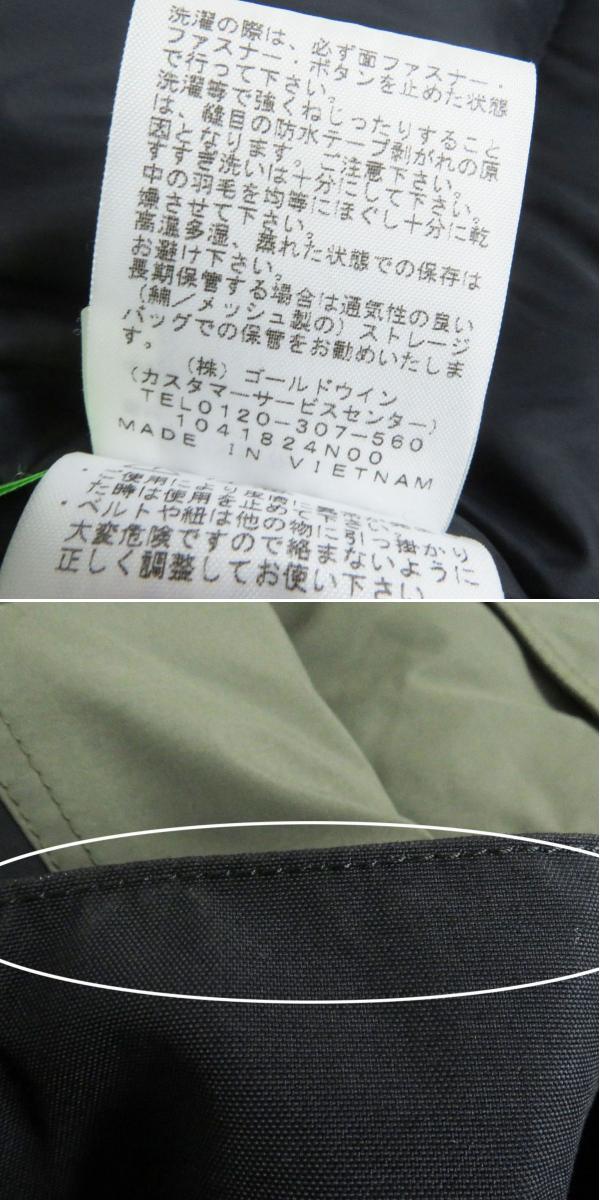 洗濯の際は、必ず面ファスナー・
ファスナー・ボタンを止めた状態
で行って下さい。
洗濯等で強くねじったりすること
は、縫目の防水テープ剥がれの原
因となります。ご注意下さい。
すすぎ洗いは十分にして下さい。
中の羽毛を均等にほぐし十分に乾
燥させて下さい。
高温多湿、蒸れた状態での保存は
お避け下さい。
長期保管する場合は通気性の良い
（綿／メッシュ製の）ストレージ
バッグでの保管をお勧めいたしま
す。
（株）ゴールドウイン
（カスタマーサービスセンター）
TEL0120-307-560
1041824N00
MADE IN VIETNAM
ご使用により
た時は使用を止めて下さい。
・ベルトや紐は他の物に引っ掛かり
大変危険ですので絡まないように
正しく調整してお使い下さい。